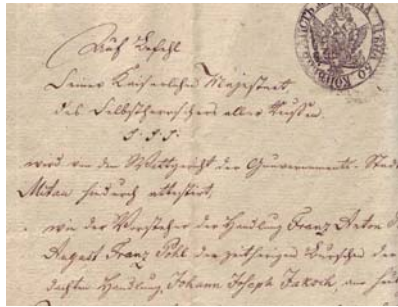 Auf Befehl
Seiner Kaiserlichen Majestaet,
des Selbstherrschers aller Reußen
wird von dem Wettgericht der Gouvernements-Stadt
Mitau hiedurch attestirt,
wie der Vorsteher der Handlung Franz Anton
August Franz Pohl der zeitherigen Burschen der
dachten Handlung, Johann Joseph Jakoch, am